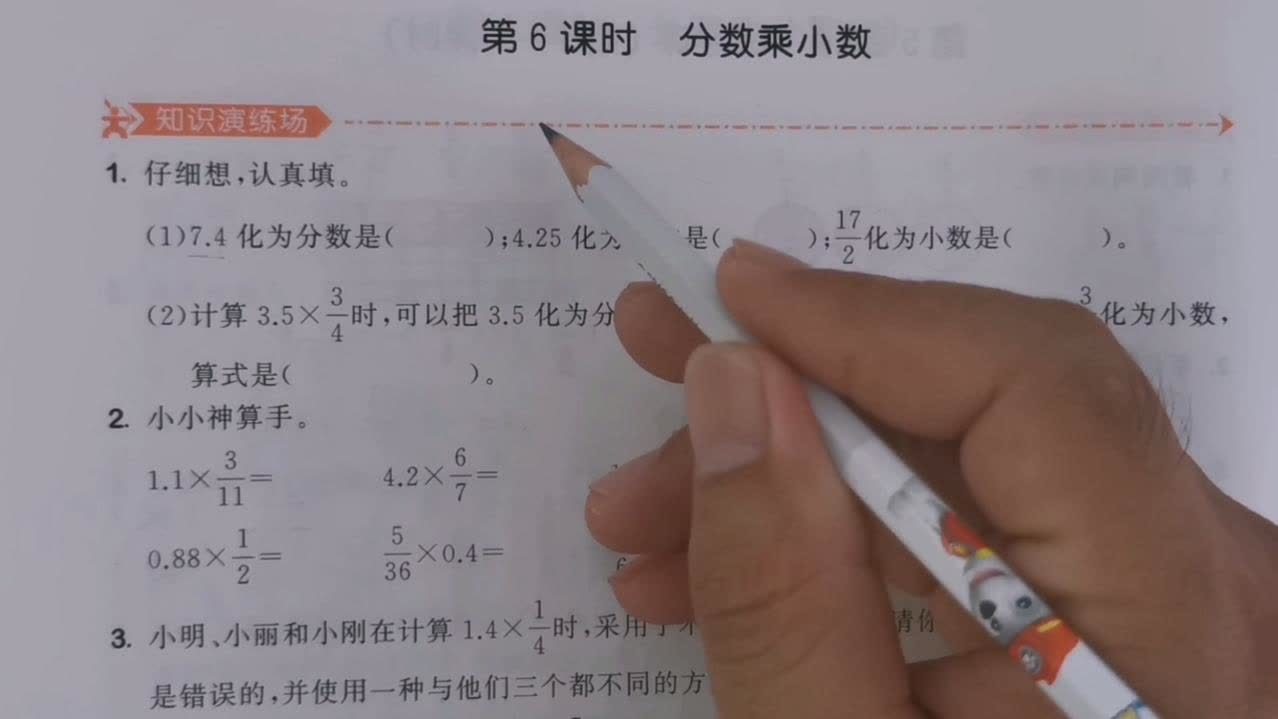 第6课时 分数乘小数
知识演练场
1. 仔细想,认真填。
(1)7.4 化为分数是( );4.25 化为 是( );17/2化为小数是( )。
(2)计算 3.5×3/4时,可以把 3.5 化为分 3 化为小数,
算式是( )。
2. 小小神算手。
1.1×3/11= 4.2×6/7=
0.88×1/2= 5/36×0.4=
3. 小明、小丽和小刚在计算 1.4×1/4时,采用了不 请你
是错误的,并使用一种与他们三个都不同的方